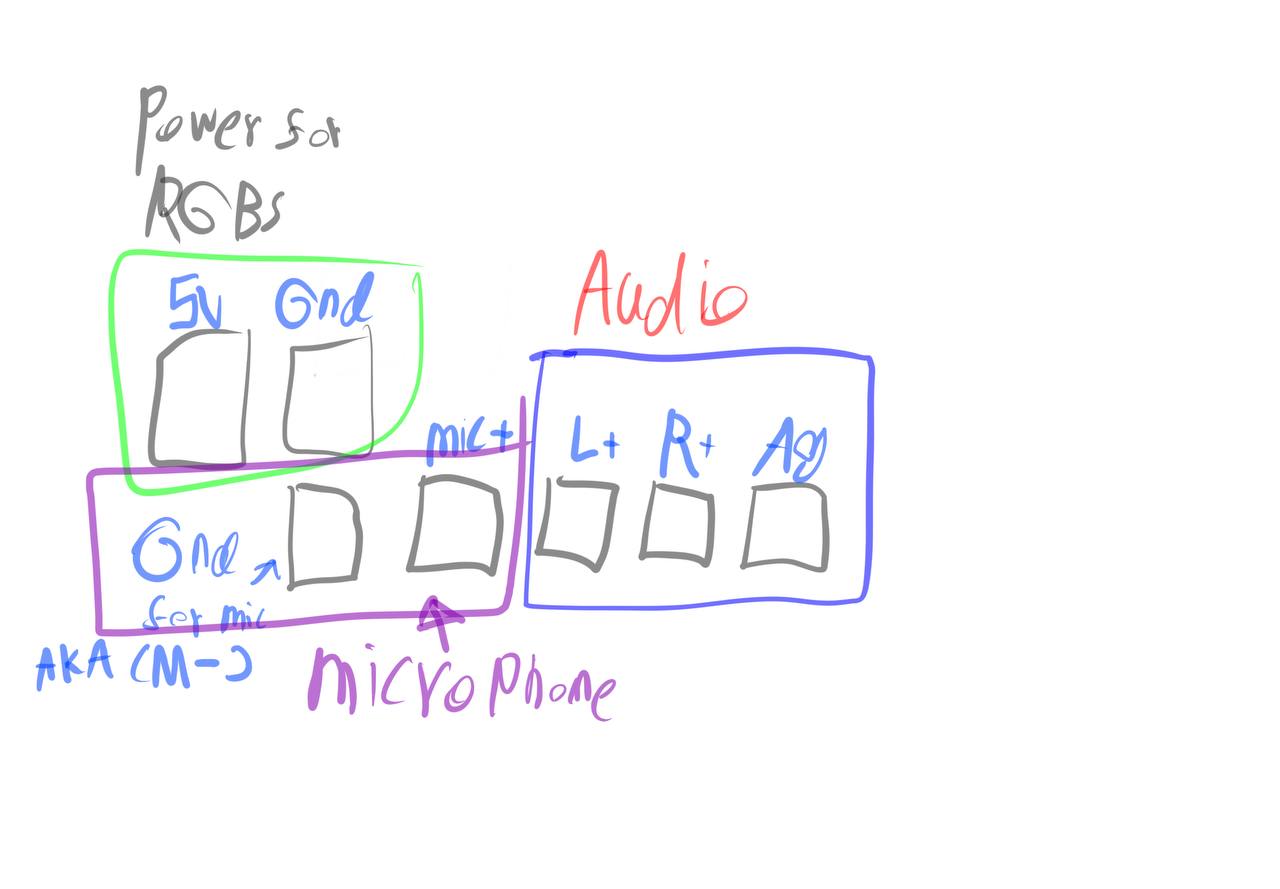 Power for
RGBs
5V Gnd
Audio
mic+ L+ R+ Ag
Gnd
for mic
AKA (M-)
microphone